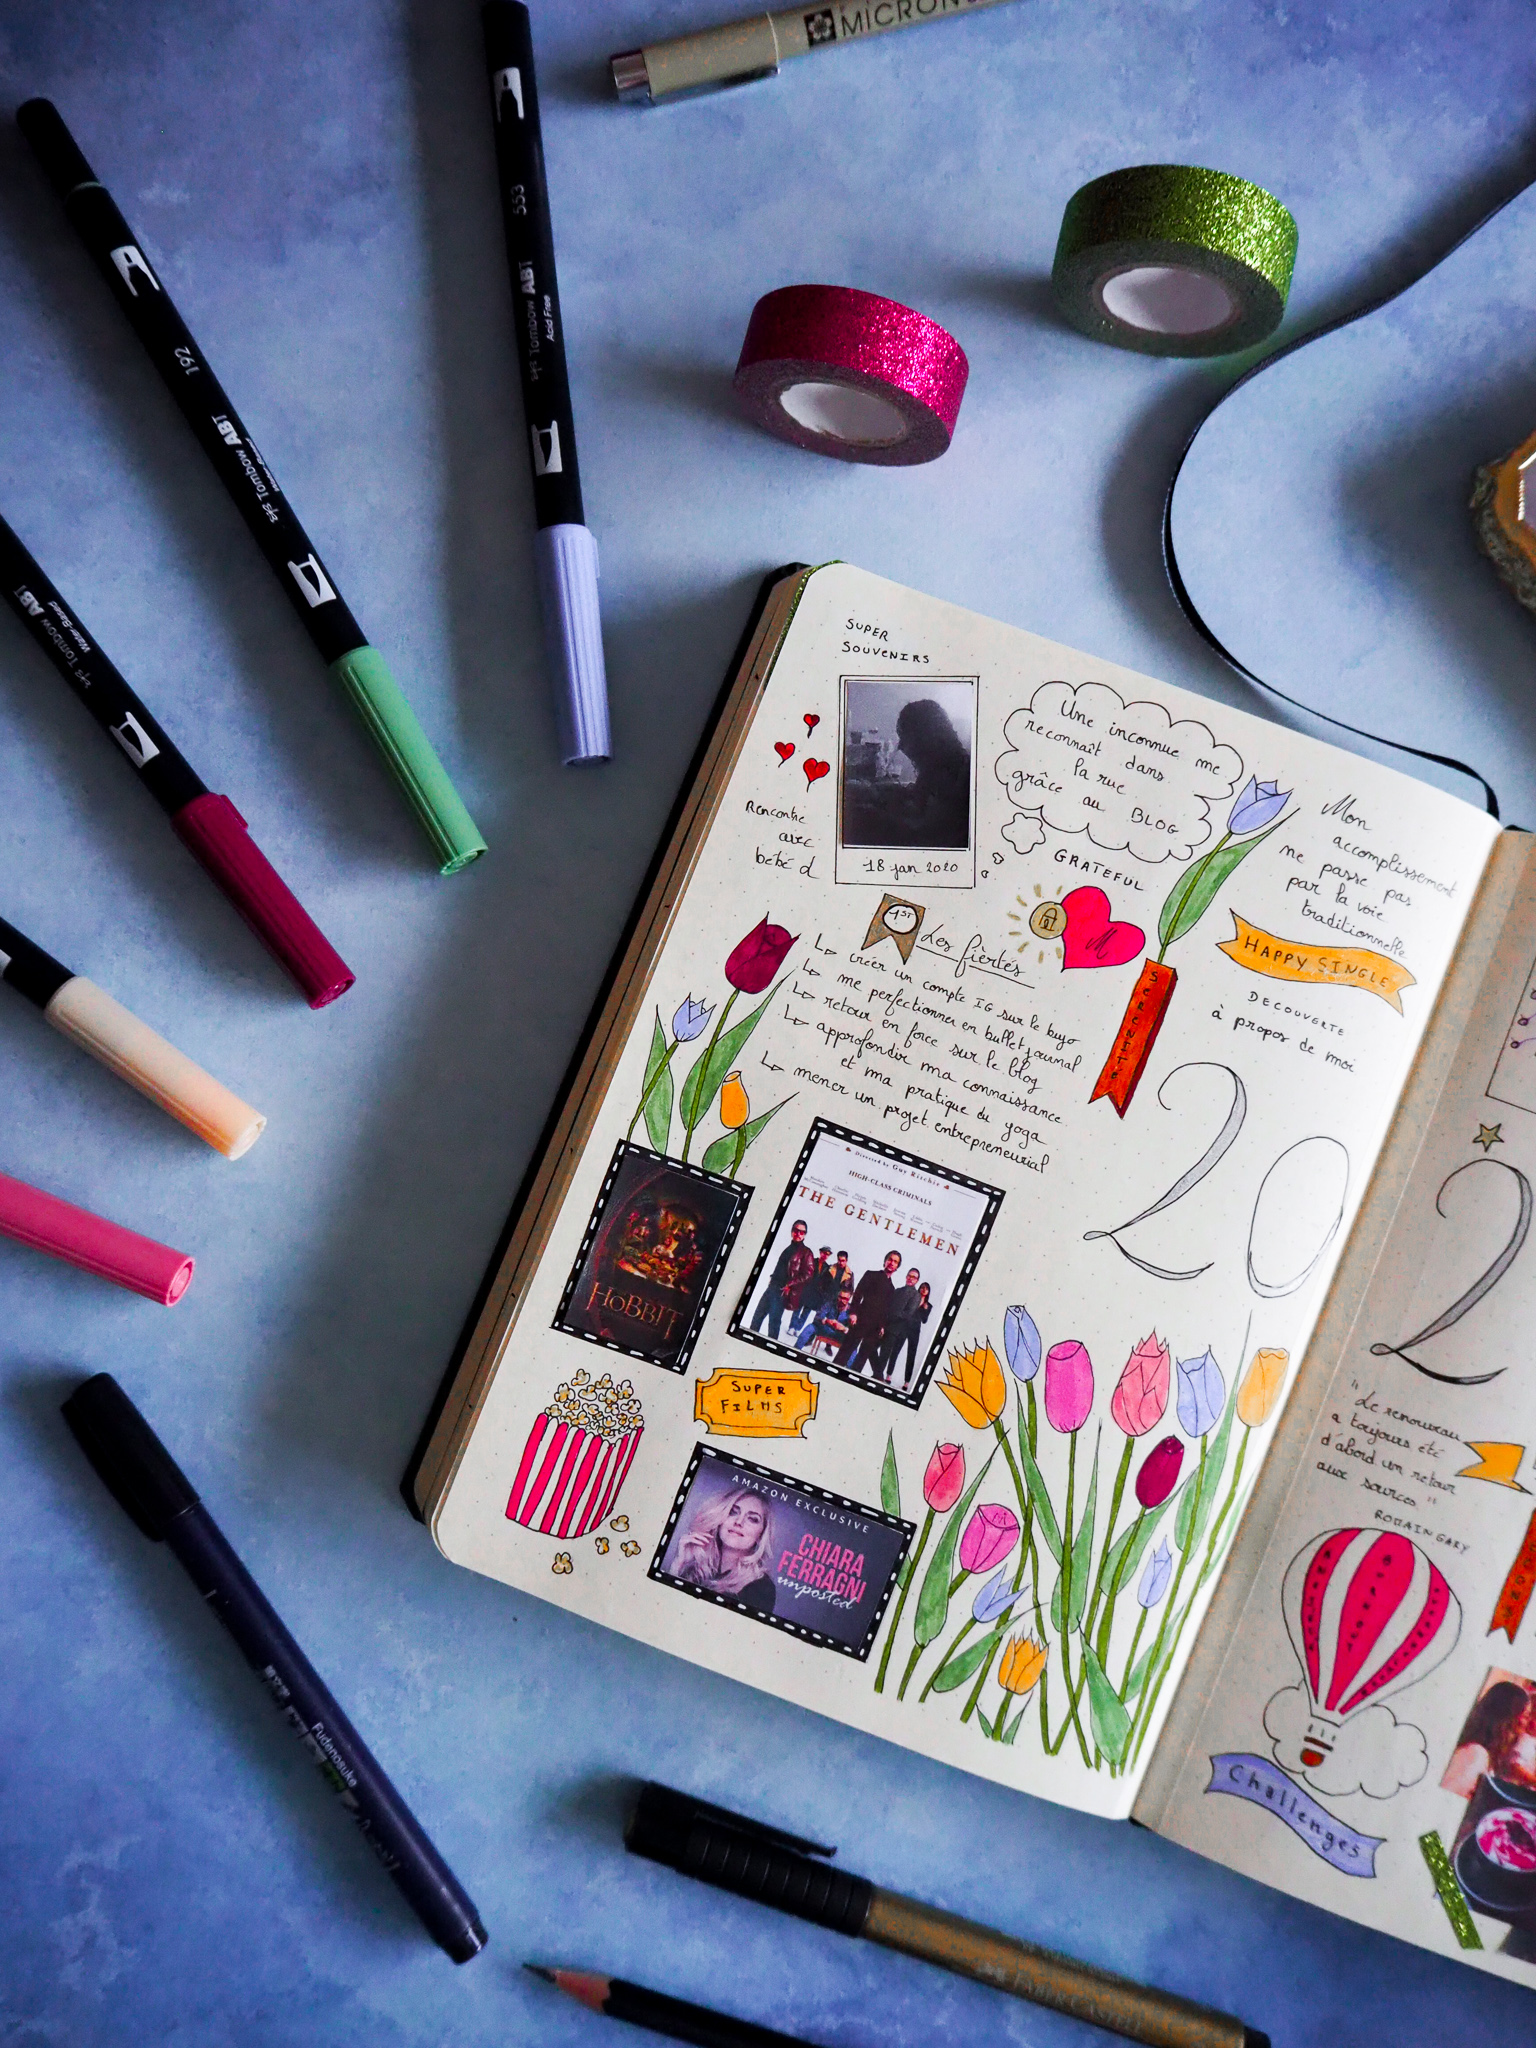 MICRON
553
Tombow ABT
Acid Free
192
Tombow ABT
Tombow ABT
Water-Based
SUPER
SOUVENIRS
18 jan 2020
Rencontre
avec
bébé d
Une inconnue me
reconnaît dans
la rue
grâce au BLOG
GRATEFUL
M
Mon
accomplissement
ne passe pas
par la voie
traditionnelle
HAPPY SINGLE
DECOUVERTE
à propos de moi
SERENITE
1ST
Les fiertés
créer un compte IG sur le bujo
me perfectionner en bullet journal
retour en force sur le blog
approfondir ma connaissance
et ma pratique du yoga
mener un projet entrepreneurial
20
2
THE HOBBIT
Directed by Guy Ritchie
HIGH-CLASS CRIMINALS
THE GENTLEMEN
SUPER
FILMS
AMAZON EXCLUSIVE
CHIARA
FERRAGNI
unposted
"Le renouveau
a toujours été
d'abord un retour
aux sources"
ROMAIN GARY
Challenges
Fudenosuke
FABER-CASTELL